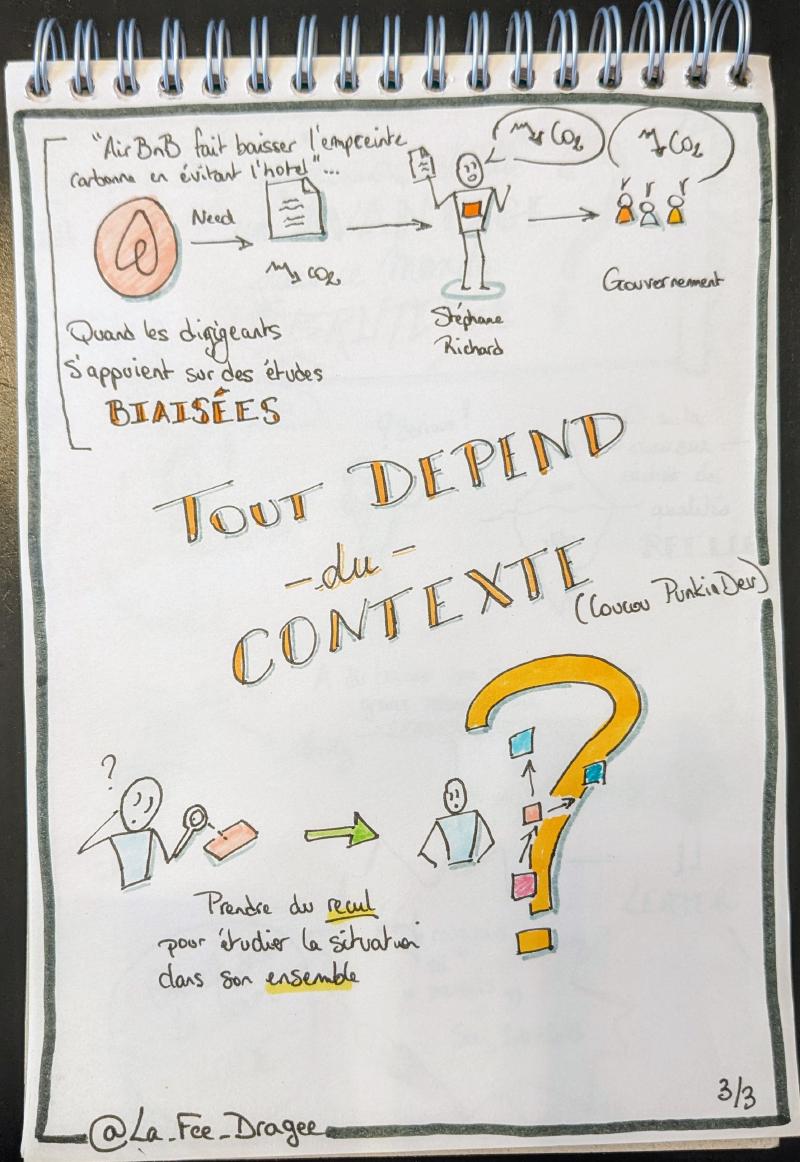 "AirBnB fait baisser l'empreinte
carbonne en évitant l'hotel"...
Need
CO2
CO2
CO2
Stéphane
Richard
Gouvernement
Quand les dirigeants
s'appuient sur des études
BIAISÉES
TOUT DEPEND
- du -
CONTEXTE
(Coucou PunkinDev)
?
Prendre du recul
pour étudier la situation
dans son ensemble
3/3
@La_Fee_Dragee